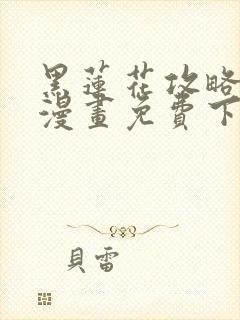 黑蓮花攻略
漫畫免費下
貝雷